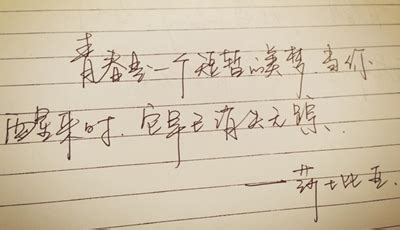 青春是一个短暂的美梦,当你
醒来时,它早已消失无踪.
——莎士比亚.